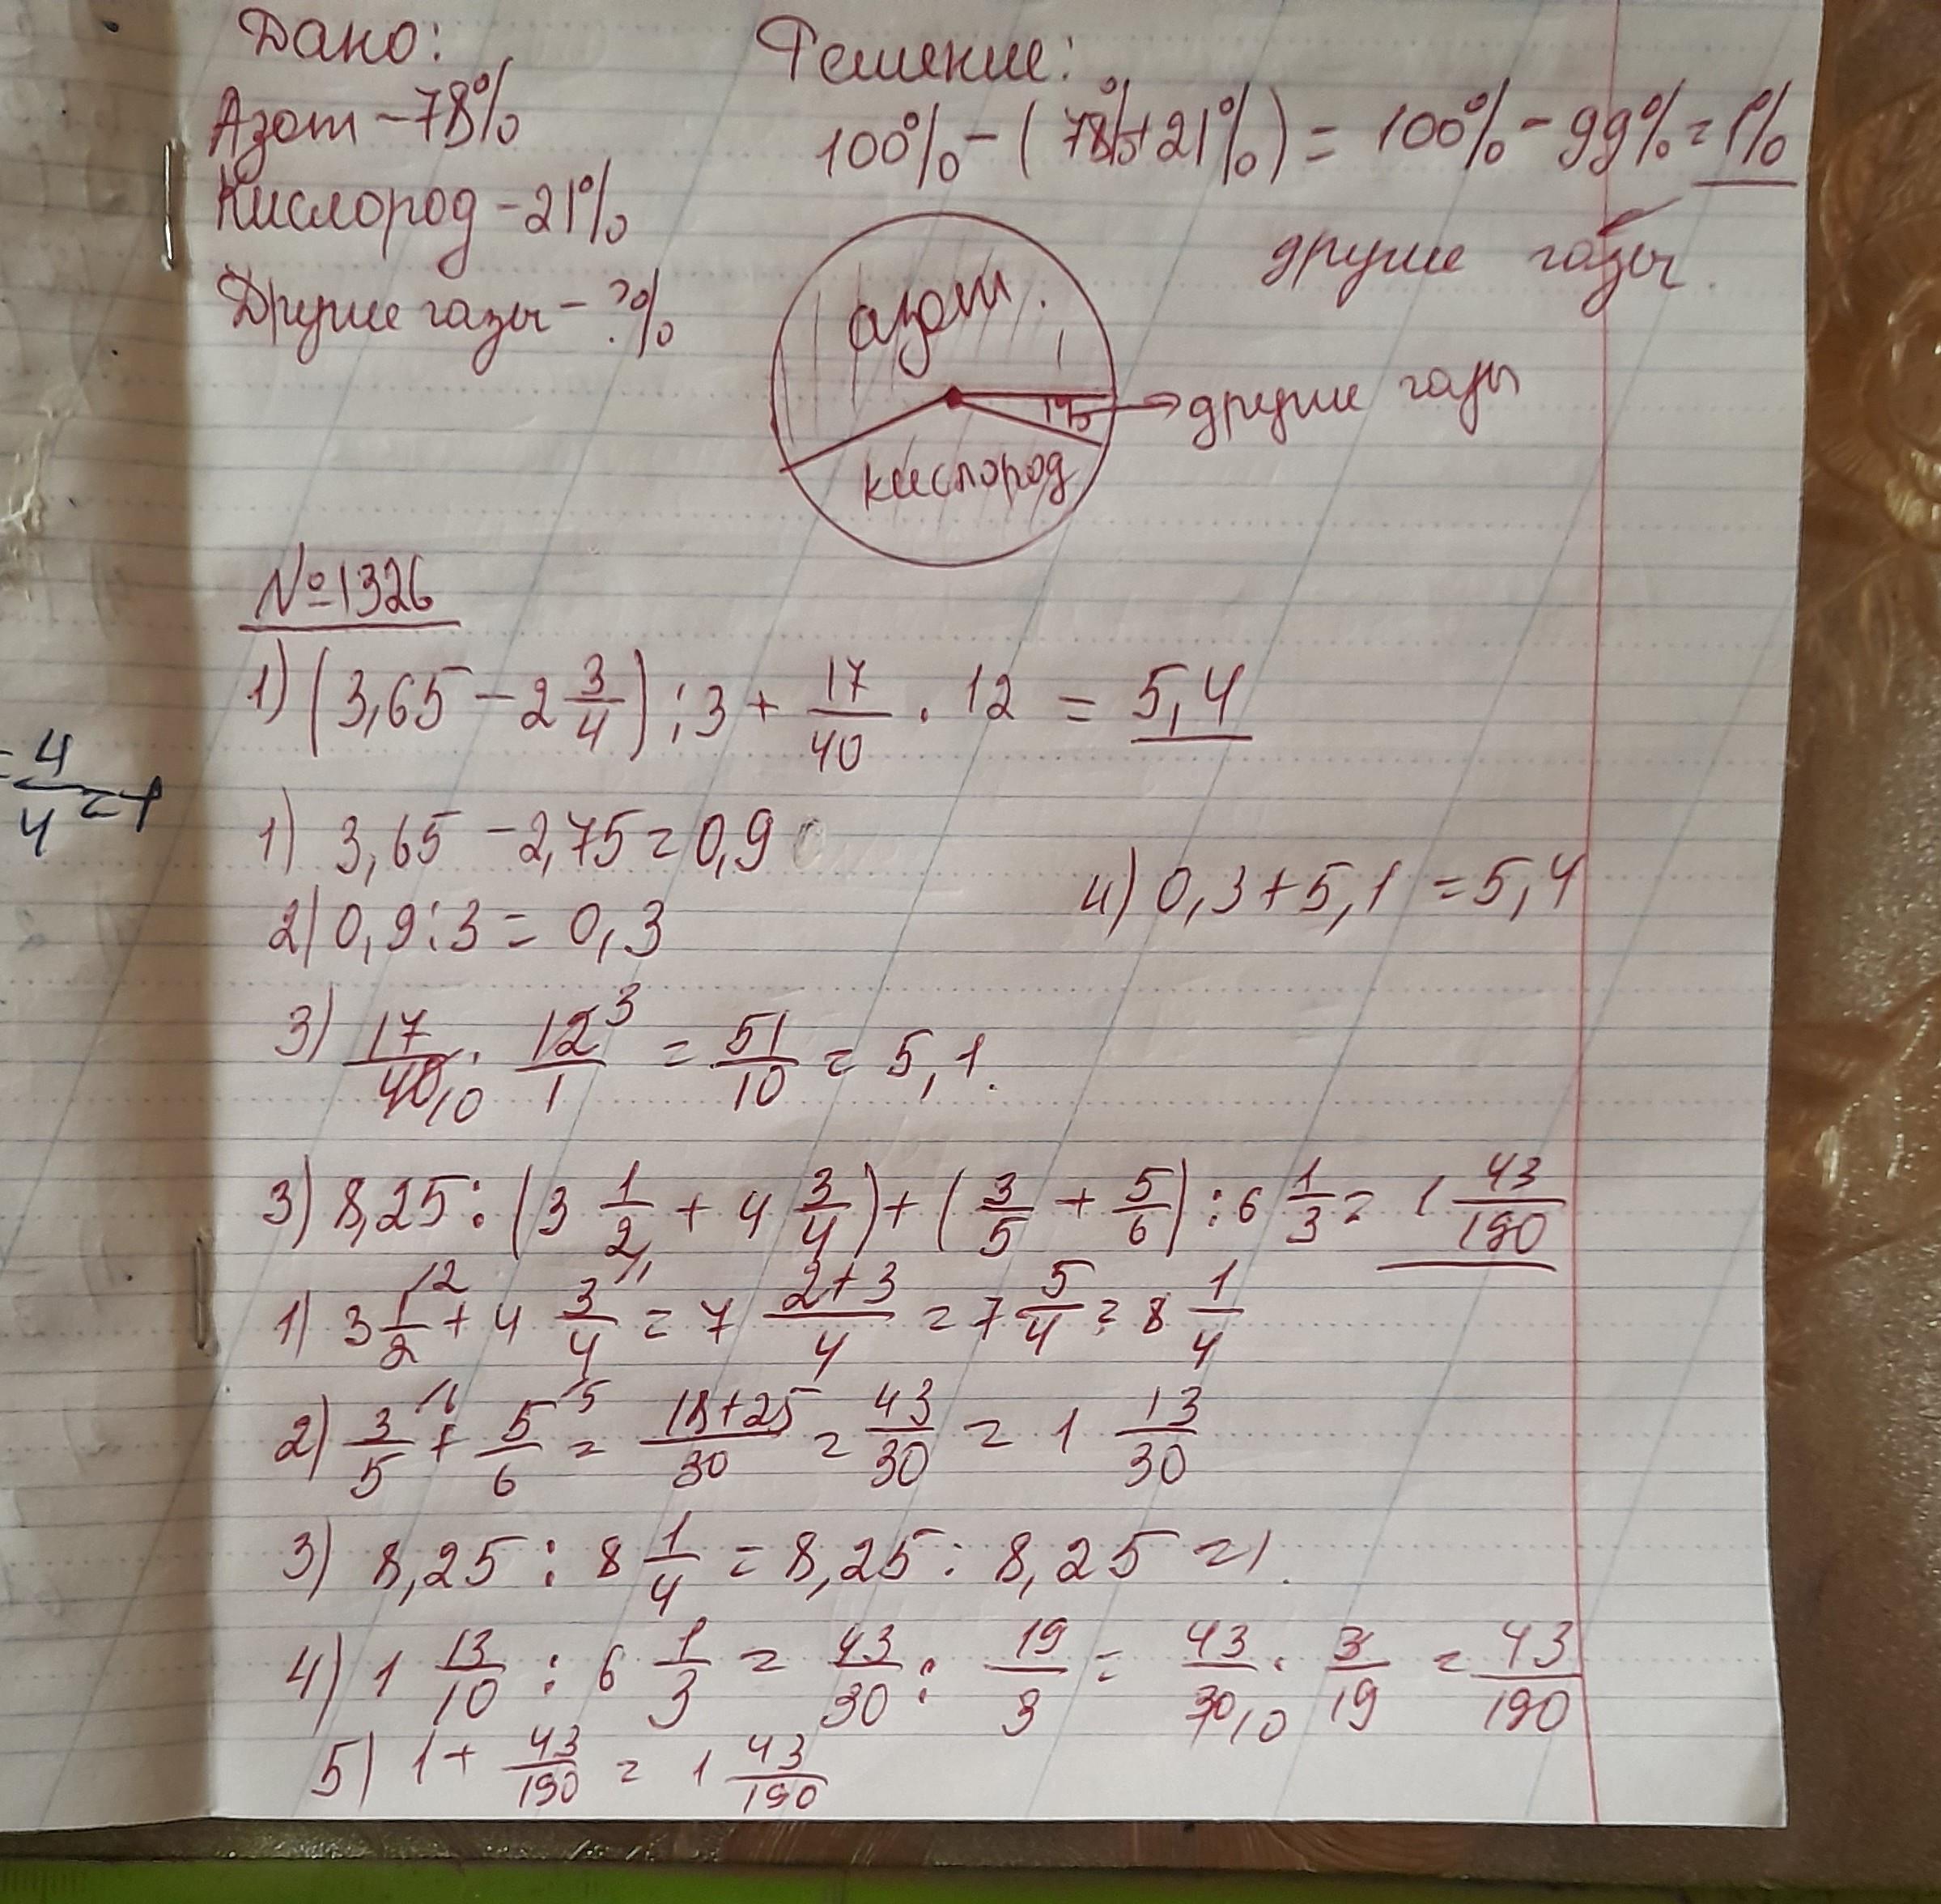 Дано:
Решение:
Азот – 78%
100% – (78%+21%) = 100% – 99% = 1%
Кислород – 21%
другие газы.
Другие газы – ?%
азот.
1%
другие газы
кислород
№1326
1) (3,65 – 2 3/4) : 3 + 17/40 · 12 = 5,4
= 4/4 = 1
1) 3,65 – 2,75 = 0,9
4) 0,3 + 5,1 = 5,4
2) 0,9 : 3 = 0,3
3) 17/40 10 · 12 3/1 = 51/10 = 5,1.
3) 8,25 : (3 1/2 + 4 3/4) + (3/5 + 5/6) : 6 1/3 = 1 43/190
1) 3 1/2 /2 + 4 3/4 /1 = 7 2+3/4 = 7 5/4 = 8 1/4
2) 3/5 /6 + 5/6 /5 = 18+25/30 = 43/30 = 1 13/30
3) 8,25 : 8 1/4 = 8,25 : 8,25 = 1.
4) 1 13/10 : 6 1/3 = 43/30 : 19/3 = 43/30 10 · 3/19 = 43/190
5) 1 + 43/190 = 1 43/190